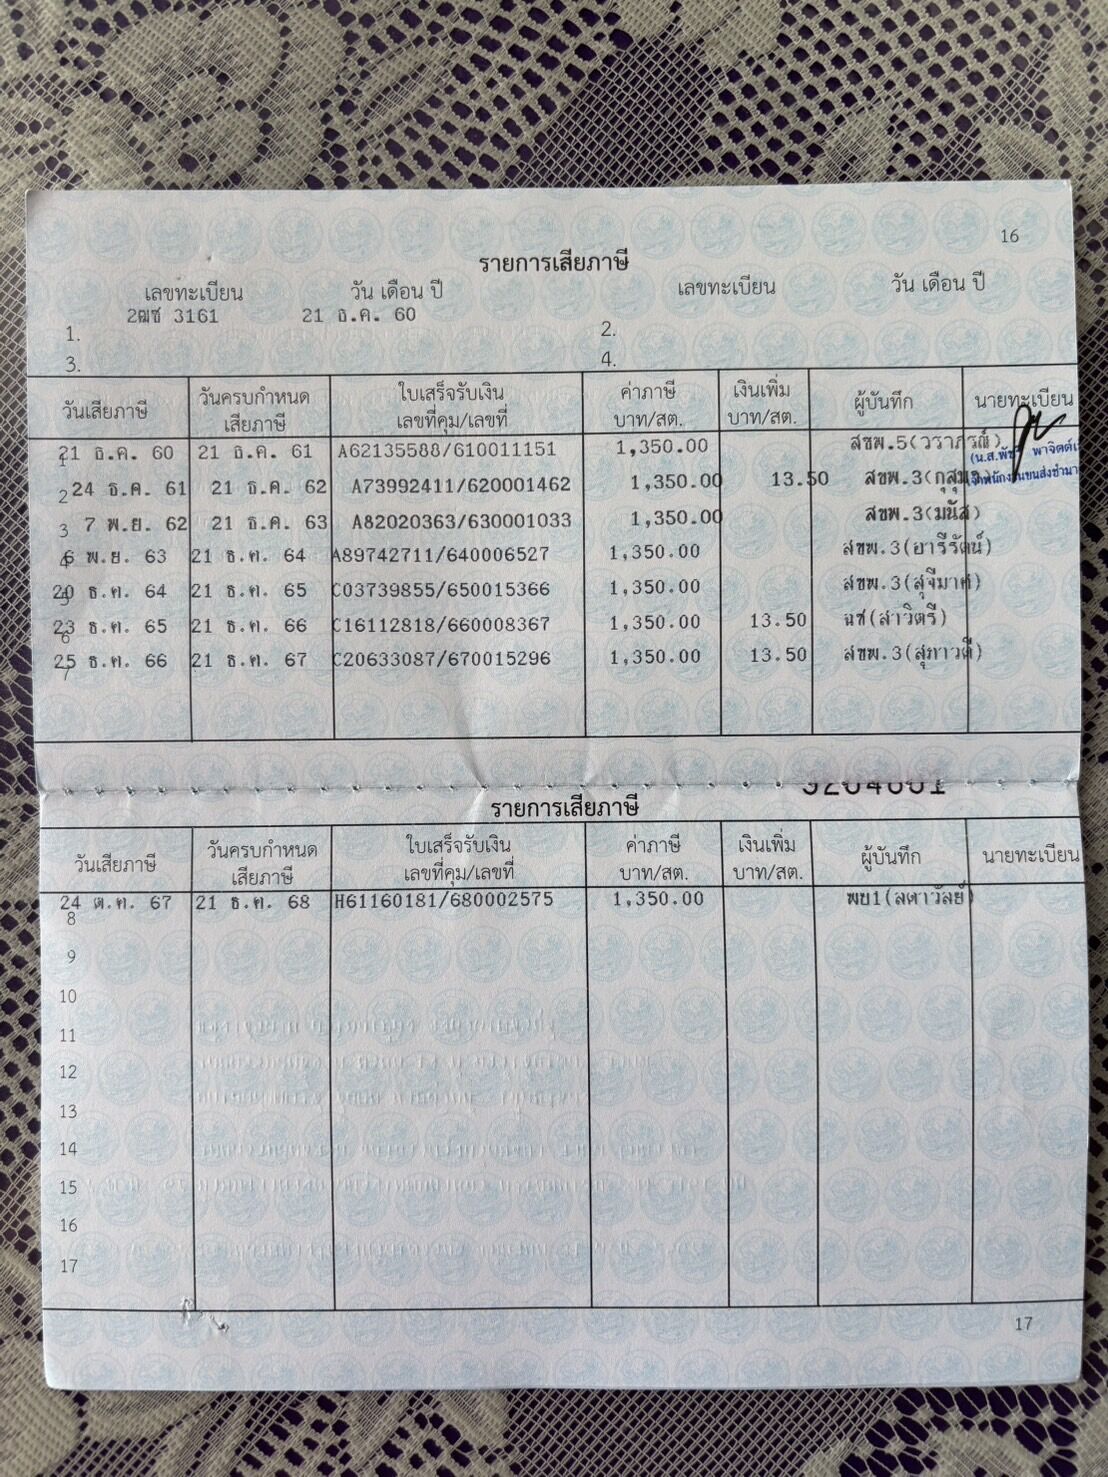 16
รายการเสียภาษี
เลขทะเบียน วัน เดือน ปี เลขทะเบียน วัน เดือน ปี
1. 2ฒซ 3161 21 ธ.ค. 60 2.
3. 4.
วันเสียภาษี วันครบกำหนดเสียภาษี ใบเสร็จรับเงิน เลขที่คุม/เลขที่ ค่าภาษี บาท/สต. เงินเพิ่ม บาท/สต. ผู้บันทึก นายทะเบียน
1 21 ธ.ค. 60 21 ธ.ค. 61 A62135588/610011151 1,350.00 สขพ.5(วราภรณ์)
(น.ส.พัช พาจิตต์
2 24 ธ.ค. 61 21 ธ.ค. 62 A73992411/620001462 1,350.00 13.50 สขพ.3(กุสุม
3 7 พ.ย. 62 21 ธ.ค. 63 A82020363/630001033 1,350.00 สขพ.3(มนัส)
4 6 พ.ย. 63 21 ธ.ค. 64 A89742711/640006527 1,350.00 สขพ.3(อารีรัตน์)
5 20 ธ.ค. 64 21 ธ.ค. 65 C03739855/650015366 1,350.00 สขพ.3(สุจีมาศ)
6 23 ธ.ค. 65 21 ธ.ค. 66 C16112818/660008367 1,350.00 13.50 ฉช(สาวิตรี)
7 25 ธ.ค. 66 21 ธ.ค. 67 C20633087/670015296 1,350.00 13.50 สขพ.3(สุภาวดี)
รายการเสียภาษี
วันเสียภาษี วันครบกำหนดเสียภาษี ใบเสร็จรับเงิน เลขที่คุม/เลขที่ ค่าภาษี บาท/สต. เงินเพิ่ม บาท/สต. ผู้บันทึก นายทะเบียน
8 24 ต.ค. 67 21 ธ.ค. 68 H61160181/680002575 1,350.00 พบ1(ลดาวัลย์)
9
10
11
12
13
14
15
16
17
17